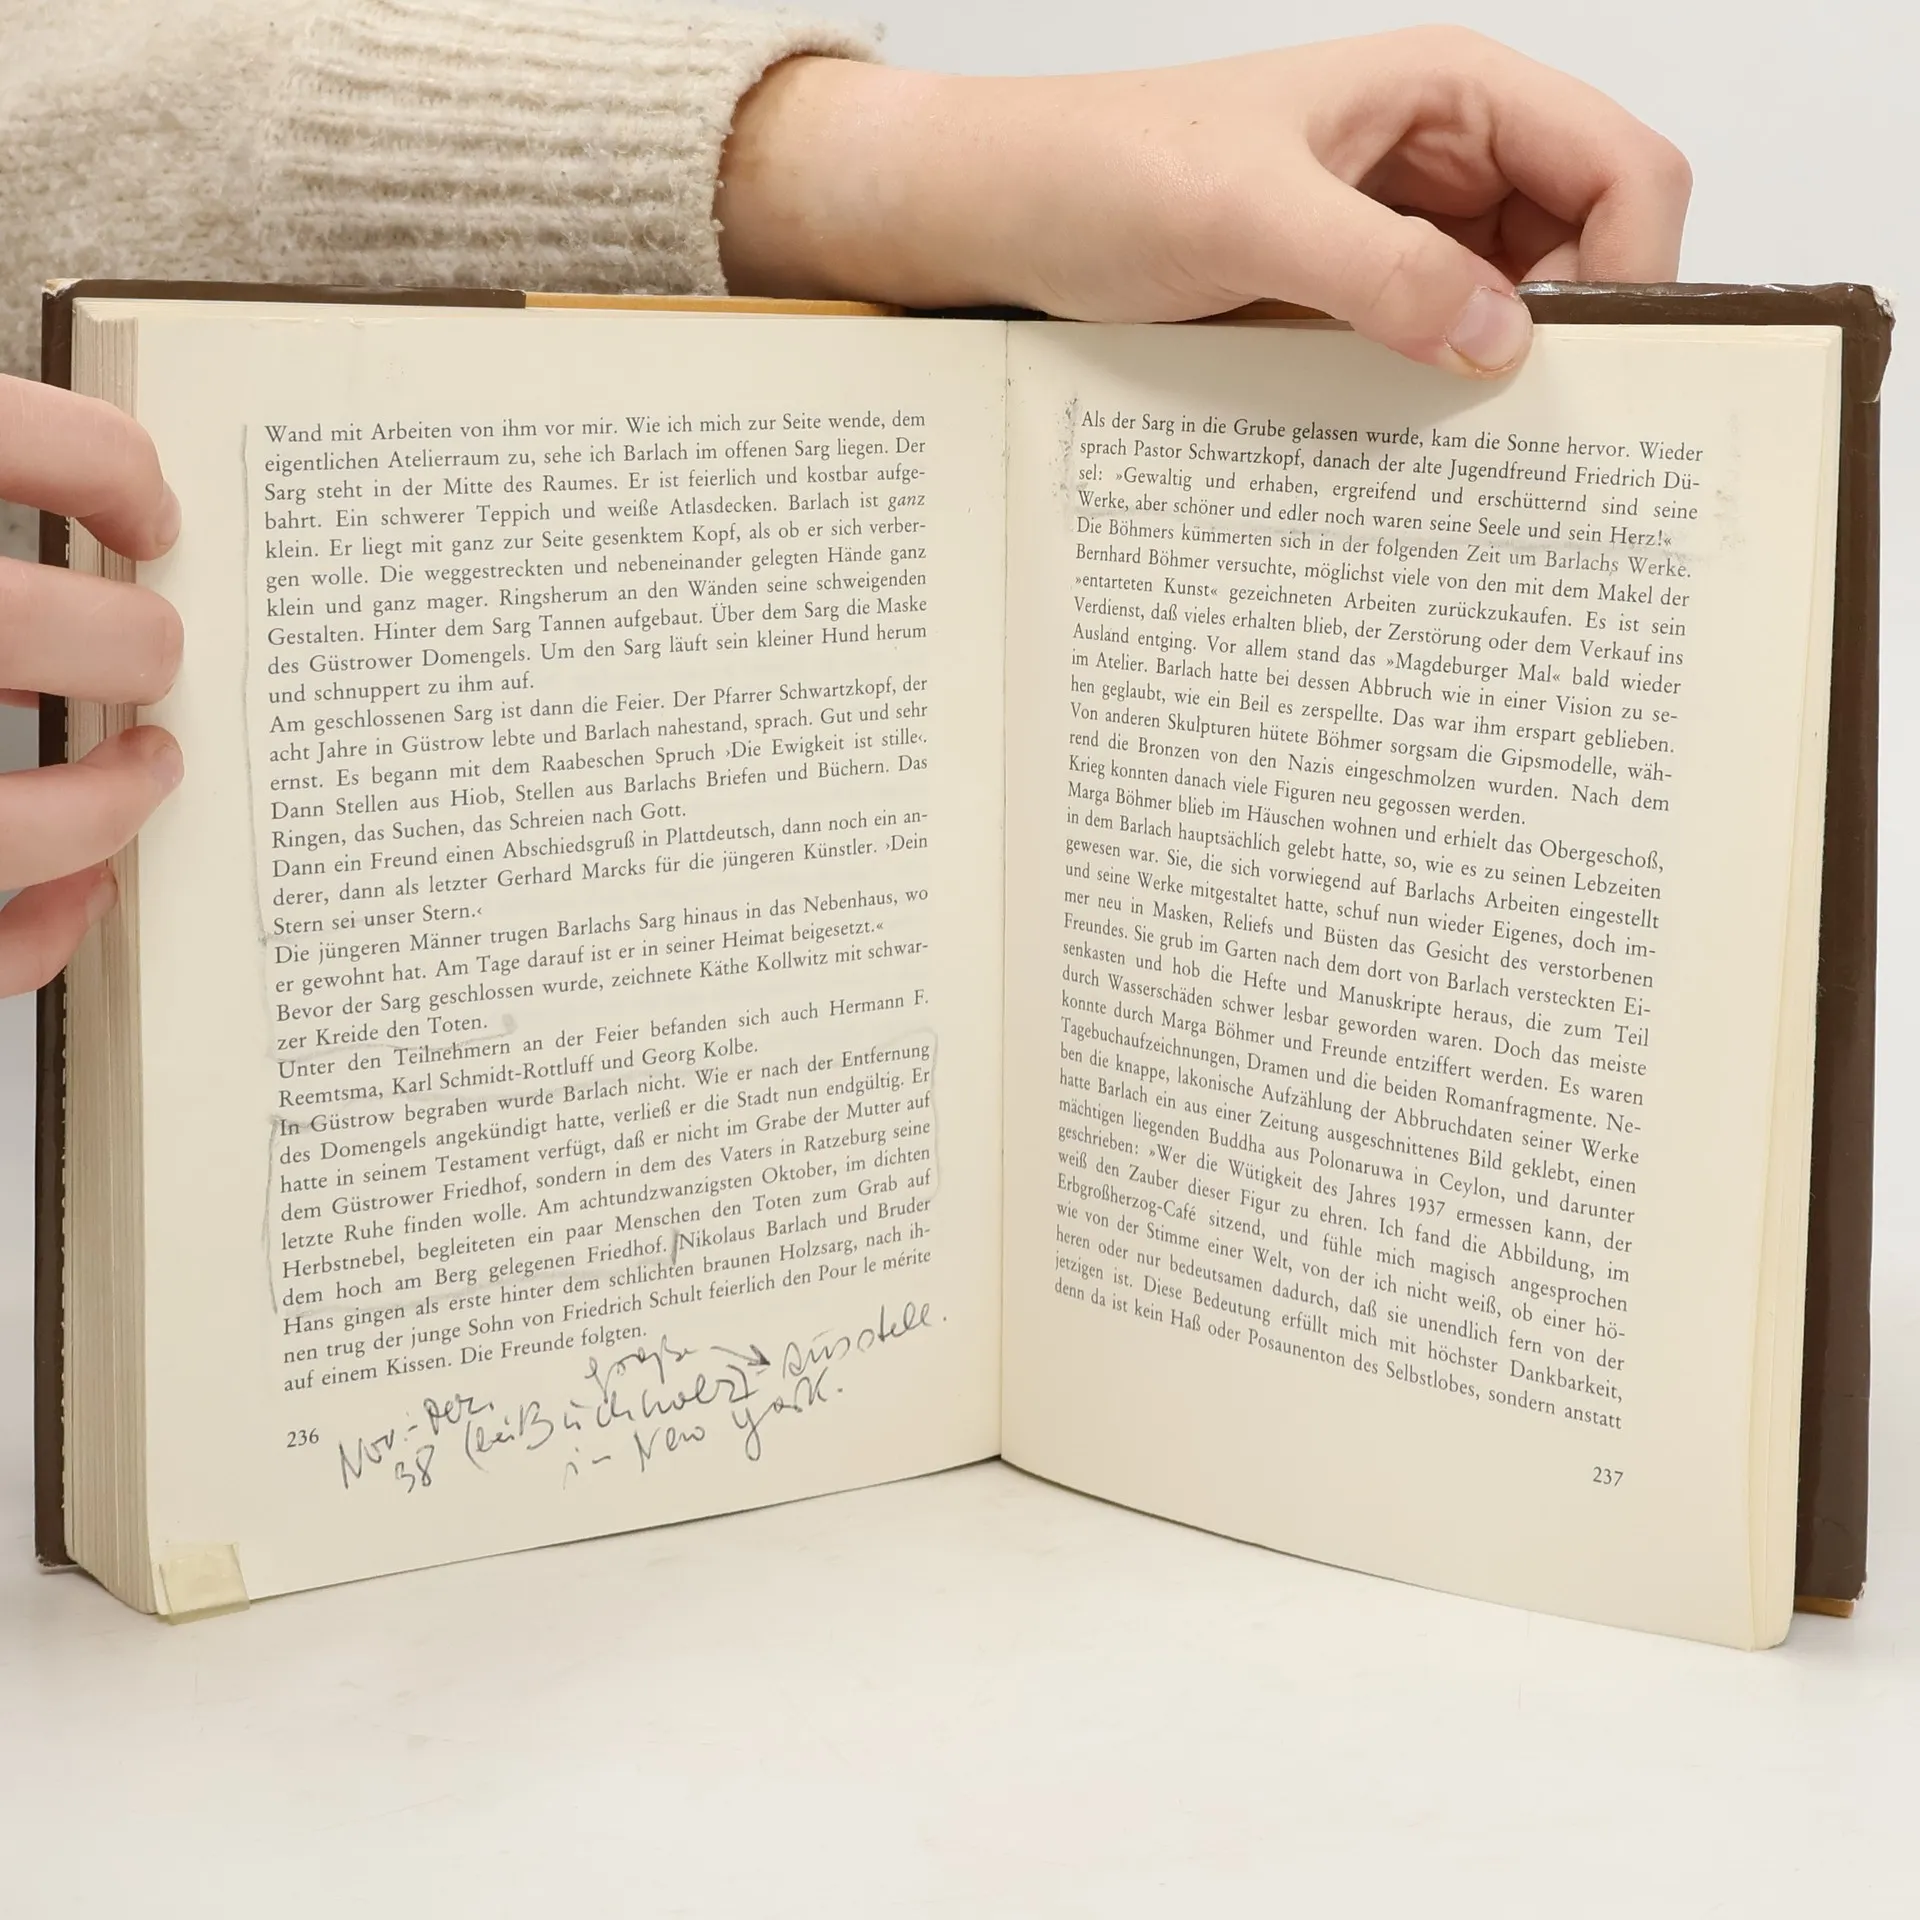 Wand mit Arbeiten von ihm vor mir. Wie ich mich zur Seite wende, dem
eigentlichen Atelierraum zu, sehe ich Barlach im offenen Sarg liegen. Der
Sarg steht in der Mitte des Raumes. Er ist feierlich und kostbar aufge-
bahrt. Ein schwerer Teppich und weiße Atlasdecken. Barlach ist ganz
klein. Er liegt mit ganz zur Seite gesenktem Kopf, als ob er sich verber-
gen wolle. Die weggestreckten und nebeneinander gelegten Hände ganz
klein und ganz mager. Ringsherum an den Wänden seine schweigenden
Gestalten. Hinter dem Sarg Tannen aufgebaut. Über dem Sarg die Maske
des Güstrower Domengels. Um den Sarg läuft sein kleiner Hund herum
und schnuppert zu ihm auf.
Am geschlossenen Sarg ist dann die Feier. Der Pfarrer Schwartzkopf, der
acht Jahre in Güstrow lebte und Barlach nahestand, sprach. Gut und sehr
ernst. Es begann mit dem Raabeschen Spruch ›Die Ewigkeit ist stille‹.
Dann Stellen aus Hiob, Stellen aus Barlachs Briefen und Büchern. Das
Ringen, das Suchen, das Schreien nach Gott.
Dann ein Freund einen Abschiedsgruß in Plattdeutsch, dann noch ein an-
derer, dann als letzter Gerhard Marcks für die jüngeren Künstler. ›Dein
Stern sei unser Stern.‹
Die jüngeren Männer trugen Barlachs Sarg hinaus in das Nebenhaus, wo
er gewohnt hat. Am Tage darauf ist er in seiner Heimat beigesetzt.«
Bevor der Sarg geschlossen wurde, zeichnete Käthe Kollwitz mit schwar-
zer Kreide den Toten.
Unter den Teilnehmern an der Feier befanden sich auch Hermann F.
Reemtsma, Karl Schmidt-Rottluff und Georg Kolbe.
In Güstrow begraben wurde Barlach nicht. Wie er nach der Entfernung
des Domengels angekündigt hatte, verließ er die Stadt nun endgültig. Er
hatte in seinem Testament verfügt, daß er nicht im Grabe der Mutter auf
dem Güstrower Friedhof, sondern in dem des Vaters in Ratzeburg seine
letzte Ruhe finden wolle. Am achtundzwanzigsten Oktober, im dichten
Herbstnebel, begleiteten ein paar Menschen den Toten zum Grab auf
dem hoch am Berg gelegenen Friedhof. Nikolaus Barlach und Bruder
Hans gingen als erste hinter dem schlichten braunen Holzsarg, nach ih-
nen trug der junge Sohn von Friedrich Schult feierlich den Pour le mérite
auf einem Kissen. Die Freunde folgten.
große
Nov.-Dez. (bei Buchholz) → Ausstell.
38 in New York.
236
Als der Sarg in die Grube gelassen wurde, kam die Sonne hervor. Wieder
sprach Pastor Schwartzkopf, danach der alte Jugendfreund Friedrich Dü-
sel: »Gewaltig und erhaben, ergreifend und erschütternd sind seine
Werke, aber schöner und edler noch waren seine Seele und sein Herz!«
Die Böhmers kümmerten sich in der folgenden Zeit um Barlachs Werke.
Bernhard Böhmer versuchte, möglichst viele von den mit dem Makel der
»entarteten Kunst« gezeichneten Arbeiten zurückzukaufen. Es ist sein
Verdienst, daß vieles erhalten blieb, der Zerstörung oder dem Verkauf ins
Ausland entging. Vor allem stand das »Magdeburger Mal« bald wieder
im Atelier. Barlach hatte bei dessen Abbruch wie in einer Vision zu se-
hen geglaubt, wie ein Beil es zerspellte. Das war ihm erspart geblieben.
Von anderen Skulpturen hütete Böhmer sorgsam die Gipsmodelle, wäh-
rend die Bronzen von den Nazis eingeschmolzen wurden. Nach dem
Krieg konnten danach viele Figuren neu gegossen werden.
Marga Böhmer blieb im Häuschen wohnen und erhielt das Obergeschoß,
in dem Barlach hauptsächlich gelebt hatte, so, wie es zu seinen Lebzeiten
gewesen war. Sie, die sich vorwiegend auf Barlachs Arbeiten eingestellt
und seine Werke mitgestaltet hatte, schuf nun wieder Eigenes, doch im-
mer neu in Masken, Reliefs und Büsten das Gesicht des verstorbenen
Freundes. Sie grub im Garten nach dem dort von Barlach versteckten Ei-
senkasten und hob die Hefte und Manuskripte heraus, die zum Teil
durch Wasserschäden schwer lesbar geworden waren. Doch das meiste
konnte durch Marga Böhmer und Freunde entziffert werden. Es waren
Tagebuchaufzeichnungen, Dramen und die beiden Romanfragmente. Ne-
ben die knappe, lakonische Aufzählung der Abbruchdaten seiner Werke
hatte Barlach ein aus einer Zeitung ausgeschnittenes Bild geklebt, einen
mächtigen liegenden Buddha aus Polonaruwa in Ceylon, und darunter
geschrieben: »Wer die Wütigkeit des Jahres 1937 ermessen kann, der
weiß den Zauber dieser Figur zu ehren. Ich fand die Abbildung, im
Erbgroßherzog-Café sitzend, und fühle mich magisch angesprochen
wie von der Stimme einer Welt, von der ich nicht weiß, ob einer hö-
heren oder nur bedeutsamen dadurch, daß sie unendlich fern von der
jetzigen ist. Diese Bedeutung erfüllt mich mit höchster Dankbarkeit,
denn da ist kein Haß oder Posaunenton des Selbstlobes, sondern anstatt
237